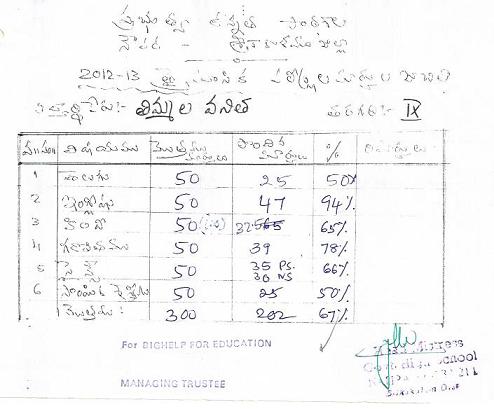 ప్రభుత్వ ఉన్నత పాఠశాల
2012-13 త్రైమాసిక పరీక్షల మార్కుల జాబిత
విద్యార్థి పేరు:- తిమ్మల వనిత తరగతి:- IX
వ.సం విషయము మొత్తము మార్కులు పొందిన మార్కులు %
1 తెలుగు 50 25 50%
2 ఇంగ్లీషు 50 47 94%
3 హిందీ 50 32 65%
4 గణితము 50 39 78%
5 సైన్స్ 50 35 PS. 30 NS 66%
6 సాంఘిక 50 25 50%
మొత్తము : 300 202 67%
For BIGHELP FOR EDUCATION
MANAGING TRUSTEE